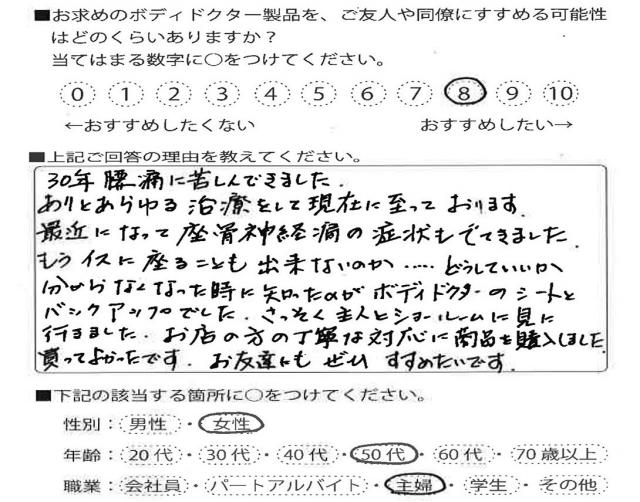 ■お求めのボディドクター製品を、ご友人や同僚にすすめる可能性
はどのくらいありますか？
当てはまる数字に○をつけてください。
0 1 2 3 4 5 6 7 8 9 10
←おすすめしたくない おすすめしたい→
■上記ご回答の理由を教えてください。
30年腰痛に苦しんできました.
ありとあらゆる治療をして現在に至っております.
最近になって座骨神経痛の症状もでてきました
もうイスに座ることも出来ないのか……どうしていいか
分からなくなった時に知ったのがボディドクターのシートと
バックアップでした. さっそく主人とショールームに見に
行きました. お店の方の丁寧な対応に商品を購入しました
買ってよかったです. お友達にもぜひすすめたいです.
■下記の該当する箇所に○をつけてください。
性別：男性・女性
年齢：20代・30代・40代・50代・60代・70歳以上
職業：会社員・パートアルバイト・主婦・学生・その他